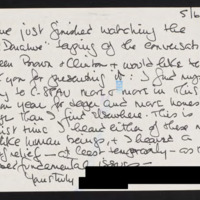 5/6
've just finished watching the
"Donahue" taping of the conversat
een Brown + Clinton + would like to
you for presenting it. I find mys
to C-SPAN more + more in this
on year for deeper and more hones
than I find elsewhere. This is
st time I heard either of these m
like human beings, + I heard a
relief — at least temporarily — as
fundamental issues —